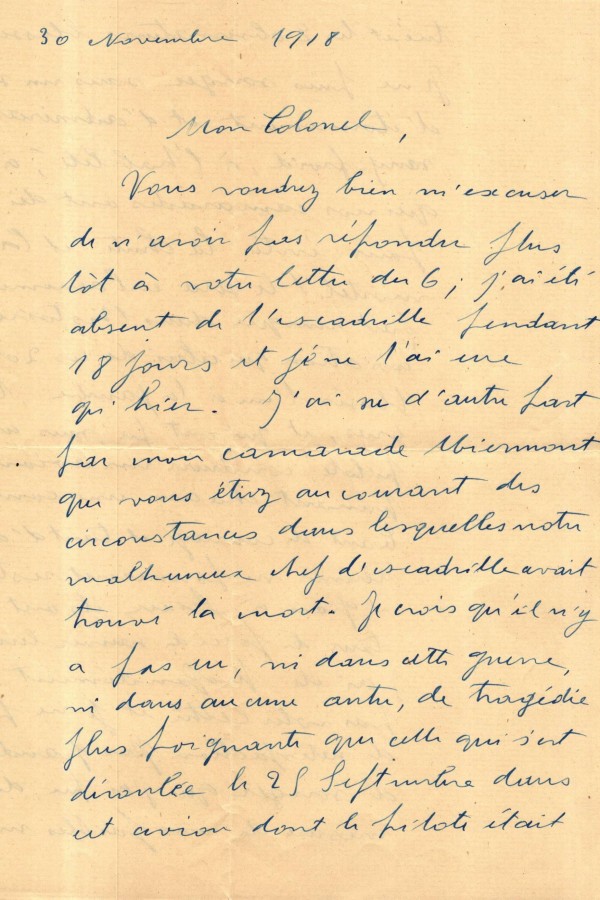 30 Novembre 1918
Mon Colonel,
Vous voudrez bien m'excuser
de n'avoir pas répondre plus
tôt à votre lettre du 6 ; j'ai été
absent de l'escadrille pendant
18 jours et je ne l'ai eue
qu'hier. J'ai su d'autre part
par mon camarade
que vous étiez au courant des
circonstances dans lesquelles notre
malheureux chef d'escadrille avait
trouvé la mort. Je crois qu'il n'y
a pas eu, ni dans cette guerre,
ni dans aucune autre, de tragédie
plus poignante que celle qui s'est
déroulée le 25 Septembre dans
cet avion dont le pilote était